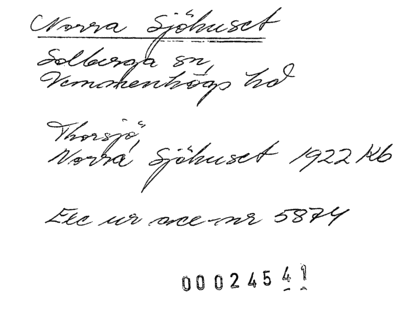 Norra Sjöhuset
Solberga sn,
Vemmenhögs hd
Thorsjö,
Norra Sjöhuset 1922 Kb
Exc ur acc-nr 5874
0002454 1